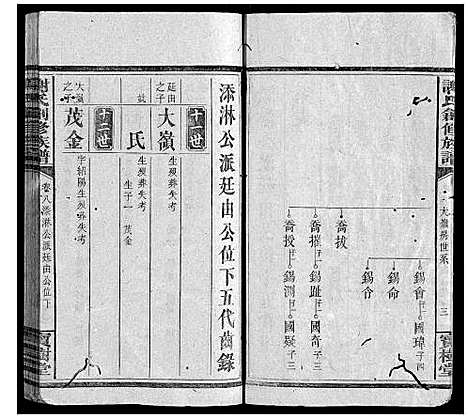 謝氏創修族譜
大嶺房世系
三
寶樹堂
錫會 國瑋 子四
錫命
錫令
喬拔
喬摧 錫趾 國奇 子三
喬授 錫測 國疑 子三
添淋公派廷由公位下五代齒錄
十一世
廷由之子
大嶺
生歿葬失考
氏
生歿葬失考
生子一 茂金
十二世
大嶺之子
茂金
字紹陽生歿葬失考
謝氏創修族譜
卷八添淋公派廷由公位下
寶樹堂